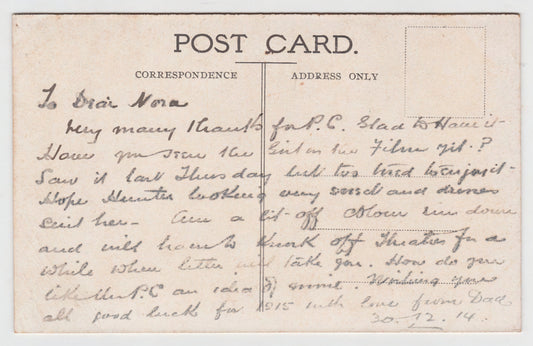 POST CARD.
CORRESPONDENCE ADDRESS ONLY
To Dear Nora
Very many thanks for P.C. Glad to Have it
Have you seen the Girl on the Film yet?
Saw it last Thursday but too tired to enjoy it
Hope Hunter looking very sweet and dresses
suit her - Am a bit off colour run down
and will have to knock off Theatres for a
while when better will take you. How do you
like this P.C an idea of mine. Wishing you
all good luck for 1915 with love from Dad
30.12.14.